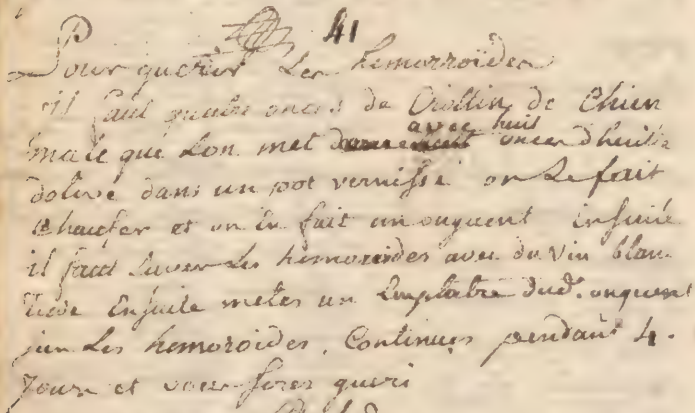 41
Pour guerir Les hemorroïdes
il faut quatre onces de Crottin de Chien
male que Lon met avec huit onces dhuille
dolive dans un pot vernissé on Le fait
Chaufer et on en fait un onguent ensuite
il faut Laver Les hemoroides avec du vin blanc
tiede Ensuite metes un Emplatre dud. onguent
sur Les hemoroides. Continues pendant 4.
Jours et vous seres gueri